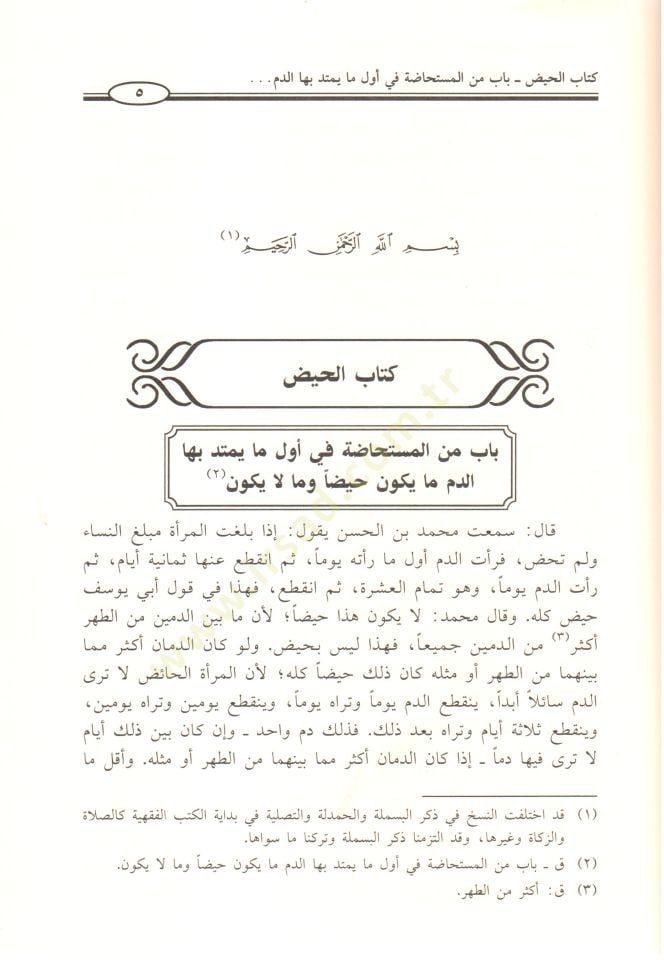 كتاب الحيض ـ باب من المستحاضة في أول ما يمتد بها الدم . . .
٥
بسم الله الرحمن الرحيم(١)
كتاب الحيض
باب من المستحاضة في أول ما يمتد بها
الدم ما يكون حيضاً وما لا يكون(٢)
قال: سمعت محمد بن الحسن يقول: إذا بلغت المرأة مبلغ النساء
ولم تحض، فرأت الدم أول ما رأته يوماً، ثم انقطع عنها ثمانية أيام، ثم
رأت الدم يوماً، وهو تمام العشرة، ثم انقطع، فهذا في قول أبي يوسف
حيض كله. وقال محمد: لا يكون هذا حيضاً؛ لأن ما بين الدمين من الطهر
أكثر(٣) من الدمين جميعاً، فهذا ليس بحيض. ولو كان الدمان أكثر مما
بينهما من الطهر أو مثله كان ذلك حيضاً كله؛ لأن المرأة الحائض لا ترى
الدم سائلاً أبداً، ينقطع الدم يوماً وتراه يوماً، وينقطع يومين وتراه يومين،
وينقطع ثلاثة أيام وتراه بعد ذلك. فذلك دم واحد ـ وإن كان بين ذلك أيام
لا ترى فيها دماً ـ إذا كان الدمان أكثر مما بينهما من الطهر أو مثله. وأقل ما
(١) قد اختلفت النسخ في ذكر البسملة والحمدلة والتصلية في بداية الكتب الفقهية كالصلاة
والزكاة وغيرها، وقد التزمنا ذكر البسملة وتركنا ما سواها.
(٢) ق ـ باب من المستحاضة في أول ما يمتد بها الدم ما يكون حيضاً وما لا يكون.
(٣) ق: أكثر من الطهر.
www.irsad.com.tr